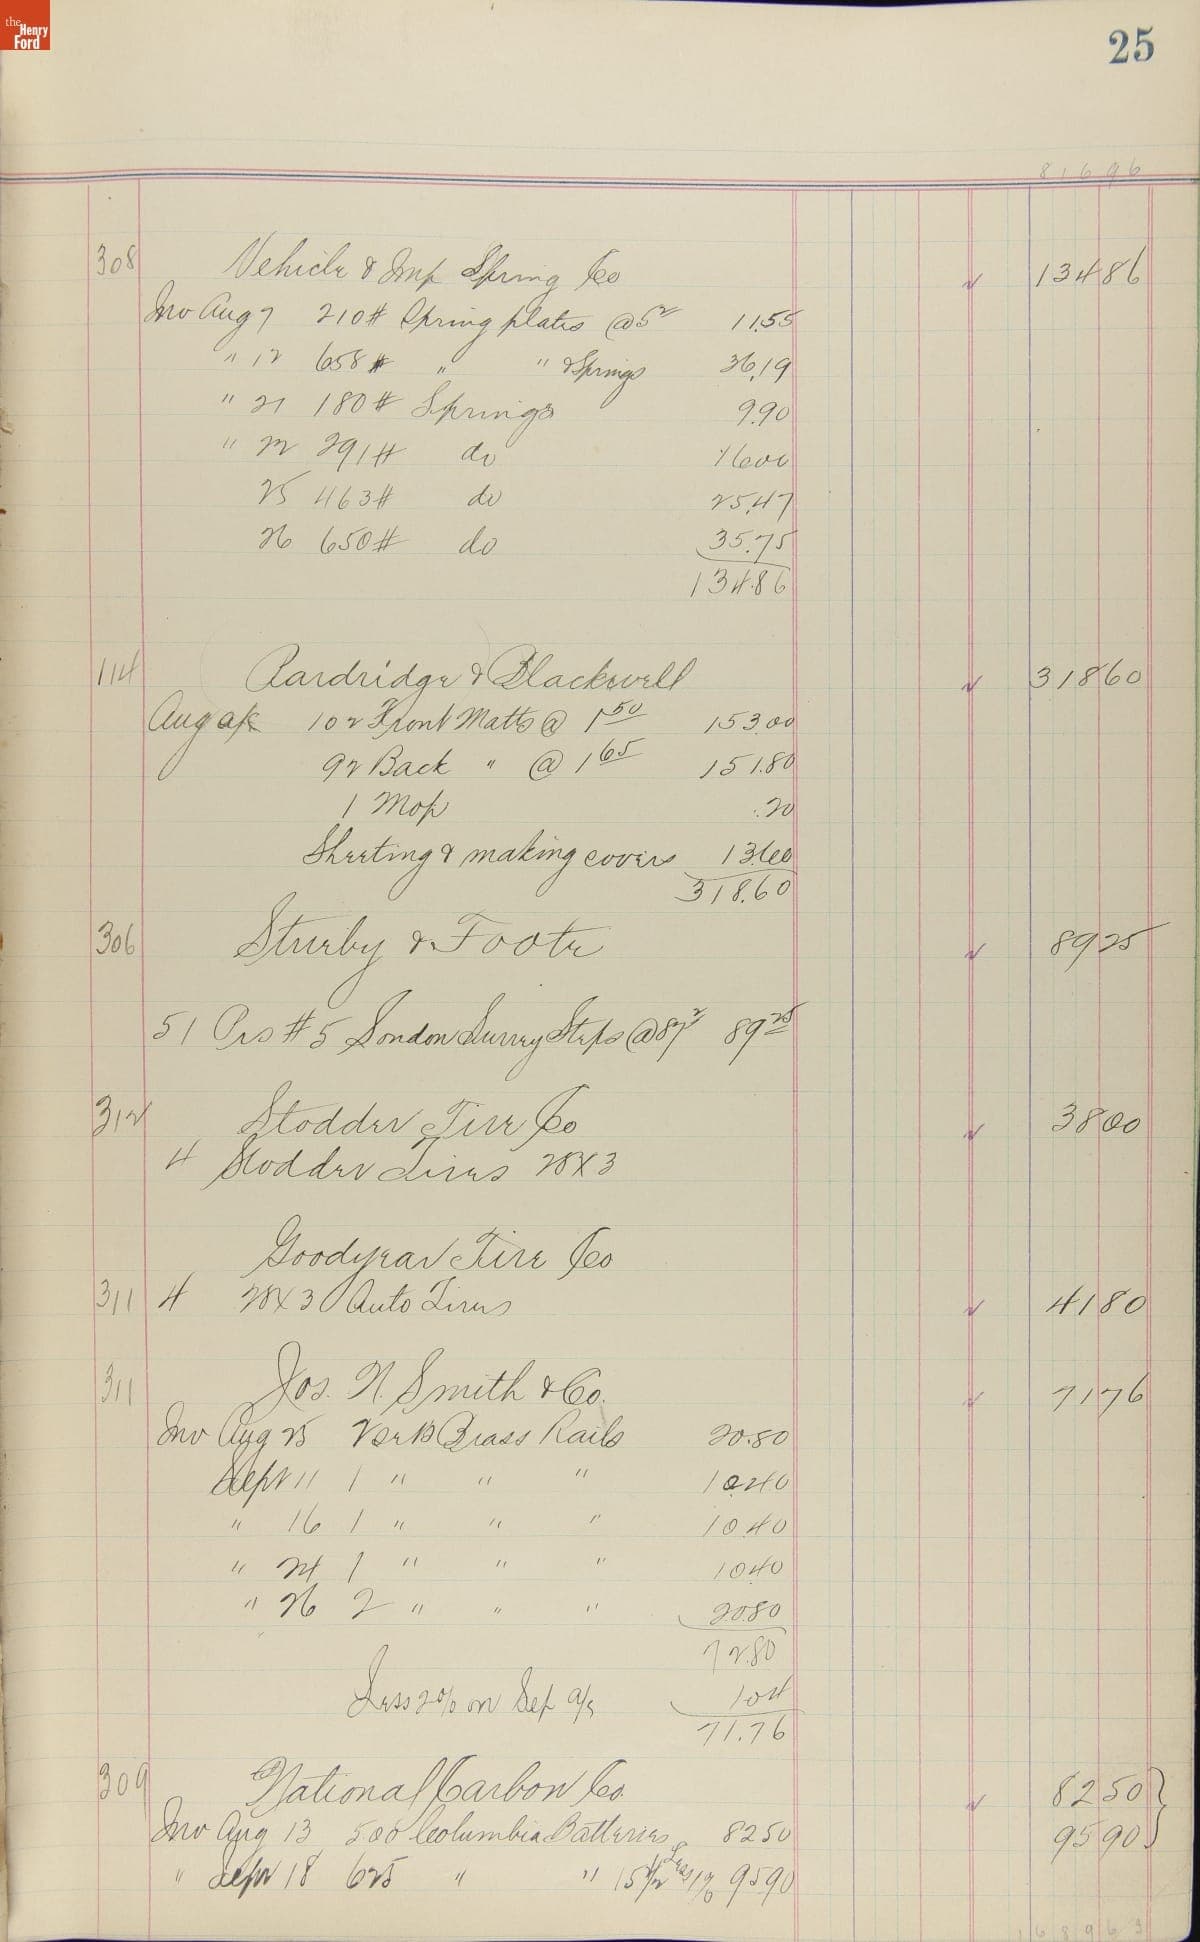 the Henry Ford
25
81696
308 Vehicle & Imp Spring Co 134 86
Inv Aug 7 210# Spring plates @ 5½ 11.55
" 12 658# " " & Springs 36.19
" 21 180# Springs 9.90
" 22 291# do 16.00
25 463# do 25.47
26 650# do 35.75
134.86
114 Pardridge & Blackwell 318 60
Aug a/c 102 Front Matts @ 1 50 153.00
92 Back " @ 1 65 151.80
1 Mop .20
Sheeting & making covers 13.60
318.60
306 & Foote 89 25
51 Prs #5 London Surrey Steps @ 87½ 89 25
312 Stodder Tire Co 38 00
4 Stodder Tires 28X3
Goodyear Tire Co
311 4 28X3 Auto Tires 41 80
311 Jos. N. Smith & Co. 71 76
Inv Aug 25 2 Brass Rails 20.80
Sept 11 1 " " " 10.40
" 16 1 " " " 10.40
" 24 1 " " " 10.40
" 26 2 " " " 20.80
72.80
Less 2% on Sep a/c 1.04
71.76
309 National Carbon Co. 82 50
Inv Aug 13 500 Columbia Batteries 82 50 95 90
" Sept 18 625 " " 15½ Less 1% 95 90
168963